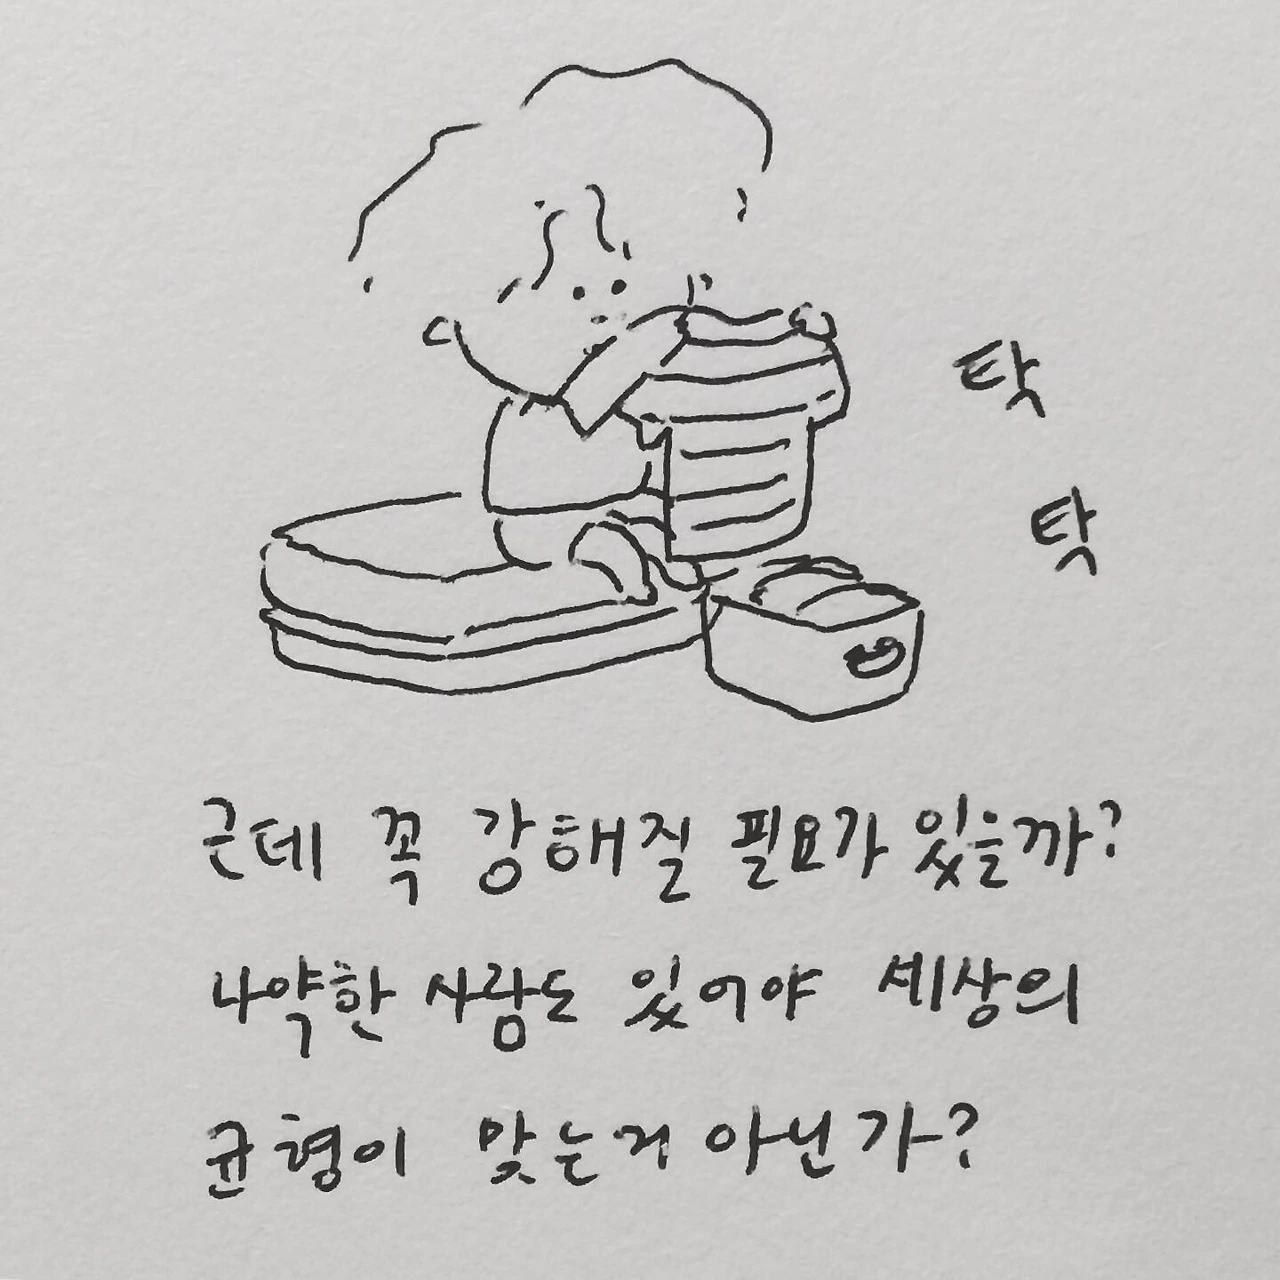 탁
탁
근데 꼭 강해질 필요가 있을까?
나약한 사람도 있어야 세상의
균형이 맞는거 아닌가?